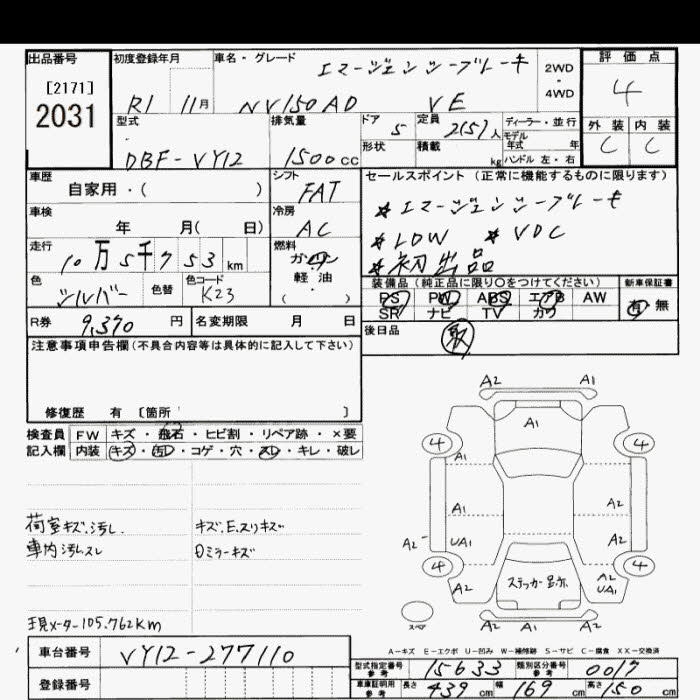 出品番号
[2171]
2031
初度登録年月
R1 11月
車名・グレード
エマージェンシーブレーキ
NV150AD VE
2WD
・
4WD
評価点
4
外装 内装
C C
型式
DBF-VY12
排気量
1500cc
ドア 5
形状
定員 2(5)人
積載 kg
ディーラー・並行
モデル
年式 年
ハンドル 左・右
車歴
自家用・( )
シフト
FAT
セールスポイント (正常に機能するものに限ります)
*エマージェンシーブレーキ
*LDW *VDC
*初出品
車検
年 月( 日)
冷房
AC
走行
10万5千753km
燃料
ガソリン
軽油
・
( )
色
シルバー
色替
色コード
K23
装備品 (純正品に限り○をつけてください)
PS PW ABS エアB AW
SR ナビ TV カワ
新車保証書
有 無
R券
9,370円
名変期限 月 日
後日品
取
注意事項申告欄(不具合内容等は具体的に記入して下さい)
修復歴 有 〔箇所 〕
検査員 FW キズ・飛石・ヒビ割・リペア跡・×要
記入欄 内装 キズ・汚レ・コゲ・穴・スレ・キレ・破レ
荷室キズ,汚レ
車内汚レスレ
キズ,E,スリキズ
Dミラーキズ
現メーター105,762Km
A2 A1
A1
4 4
A1
A1 A2
A2 UA1 A2
4 4
A2 ステッカー跡 A2
UA1
A2 A1 A2
スペア
A-キズ E-エクボ U-凹み W-補修跡 S-サビ C-腐食 XX-交換済
車台番号
VY12-277110
登録番号
型式指定番号
参考
15633
類別区分番号
参考
0017
車庫証明用
参考
長さ 439cm 幅 169cm 高さ 150cm